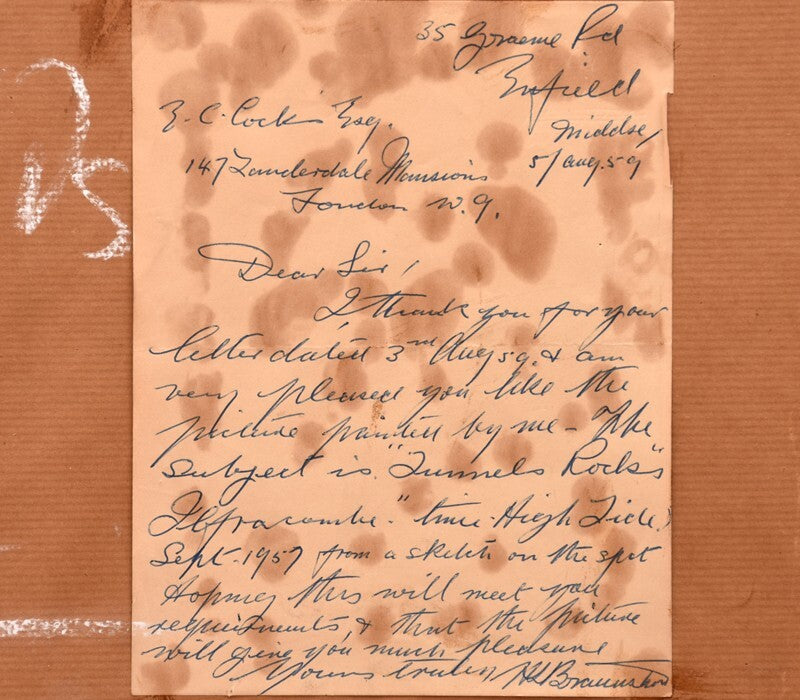 35 Graeme Rd
Enfield
Middsex
E. C. Cocks Esq.
5/Aug. 59
147 Lauderdale Mansions
London W. 9.
Dear Sir,
I thank you for your
letter dated 3rd Aug 59. & am
very pleased you like the
picture painted by me - The
subject is "Tunnels Rocks"
Ilfracombe." time - High Tide.
Sept. 1957 from a sketch on the spot
Hoping this will meet your
requirements, & that the picture
will give you much pleasure
Yours truly